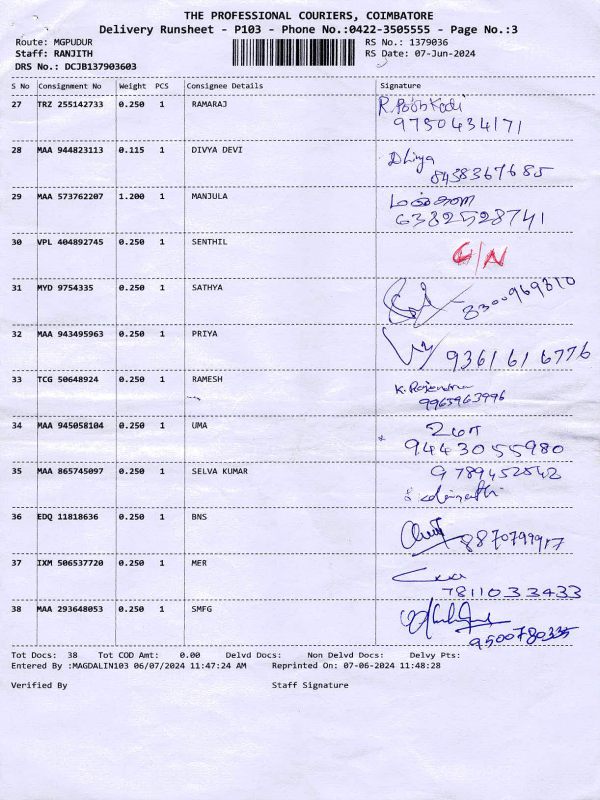 THE PROFESSIONAL COURIERS, COIMBATORE
Delivery Runsheet - P103 - Phone No.:0422-3505555 - Page No.:3
Route: MGPUDUR RS No.: 1379036
Staff: RANJITH RS Date: 07-Jun-2024
DRS No.: DCJB137903603
S No Consignment No Weight PCS Consignee Details Signature
27 TRZ 255142733 0.250 1 RAMARAJ
9750434171
28 MAA 944823113 0.115 1 DIVYA DEVI Dhivya
8438367685
29 MAA 573762207 1.200 1 MANJULA மஞ்சுளா
6382528741
30 VPL 404892745 0.250 1 SENTHIL
31 MYD 9754335 0.250 1 SATHYA
32 MAA 943495963 0.250 1 PRIYA
9361616776
33 TCG 50648924 0.250 1 RAMESH K. Rajendran
9965963996
34 MAA 945058104 0.250 1 UMA உமா
9443055980
35 MAA 865745097 0.250 1 SELVA KUMAR 9789452542
36 EDQ 11818636 0.250 1 BNS
8870799917
37 IXM 506537720 0.250 1 MER
7811033433
38 MAA 293648053 0.250 1 SMFG
9500780335
Tot Docs: 38 Tot COD Amt: 0.00 Delvd Docs: Non Delvd Docs: Delvy Pts:
Entered By :MAGDALIN103 06/07/2024 11:47:24 AM Reprinted On: 07-06-2024 11:48:28
Verified By Staff Signature